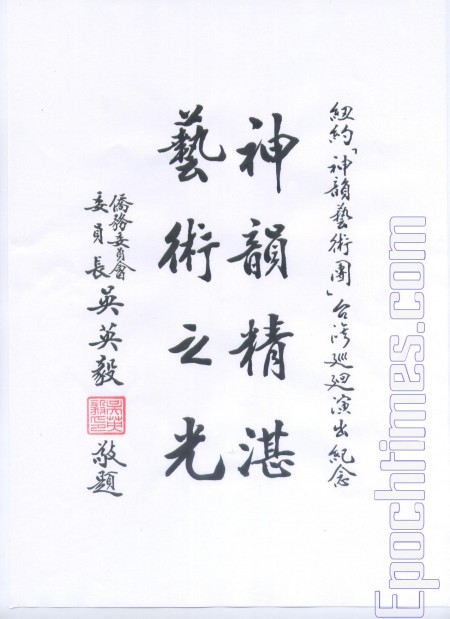 紐約「神韻藝術團」台灣巡迴演出紀念
神韻精湛
藝術之光
僑務委員會
委員長 吳英毅
吳英毅印
敬題
Epochtimes.com